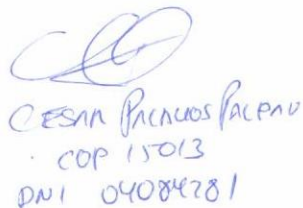 CESAR PALACIOS PALPAN
COP 15013
DNI 04084281